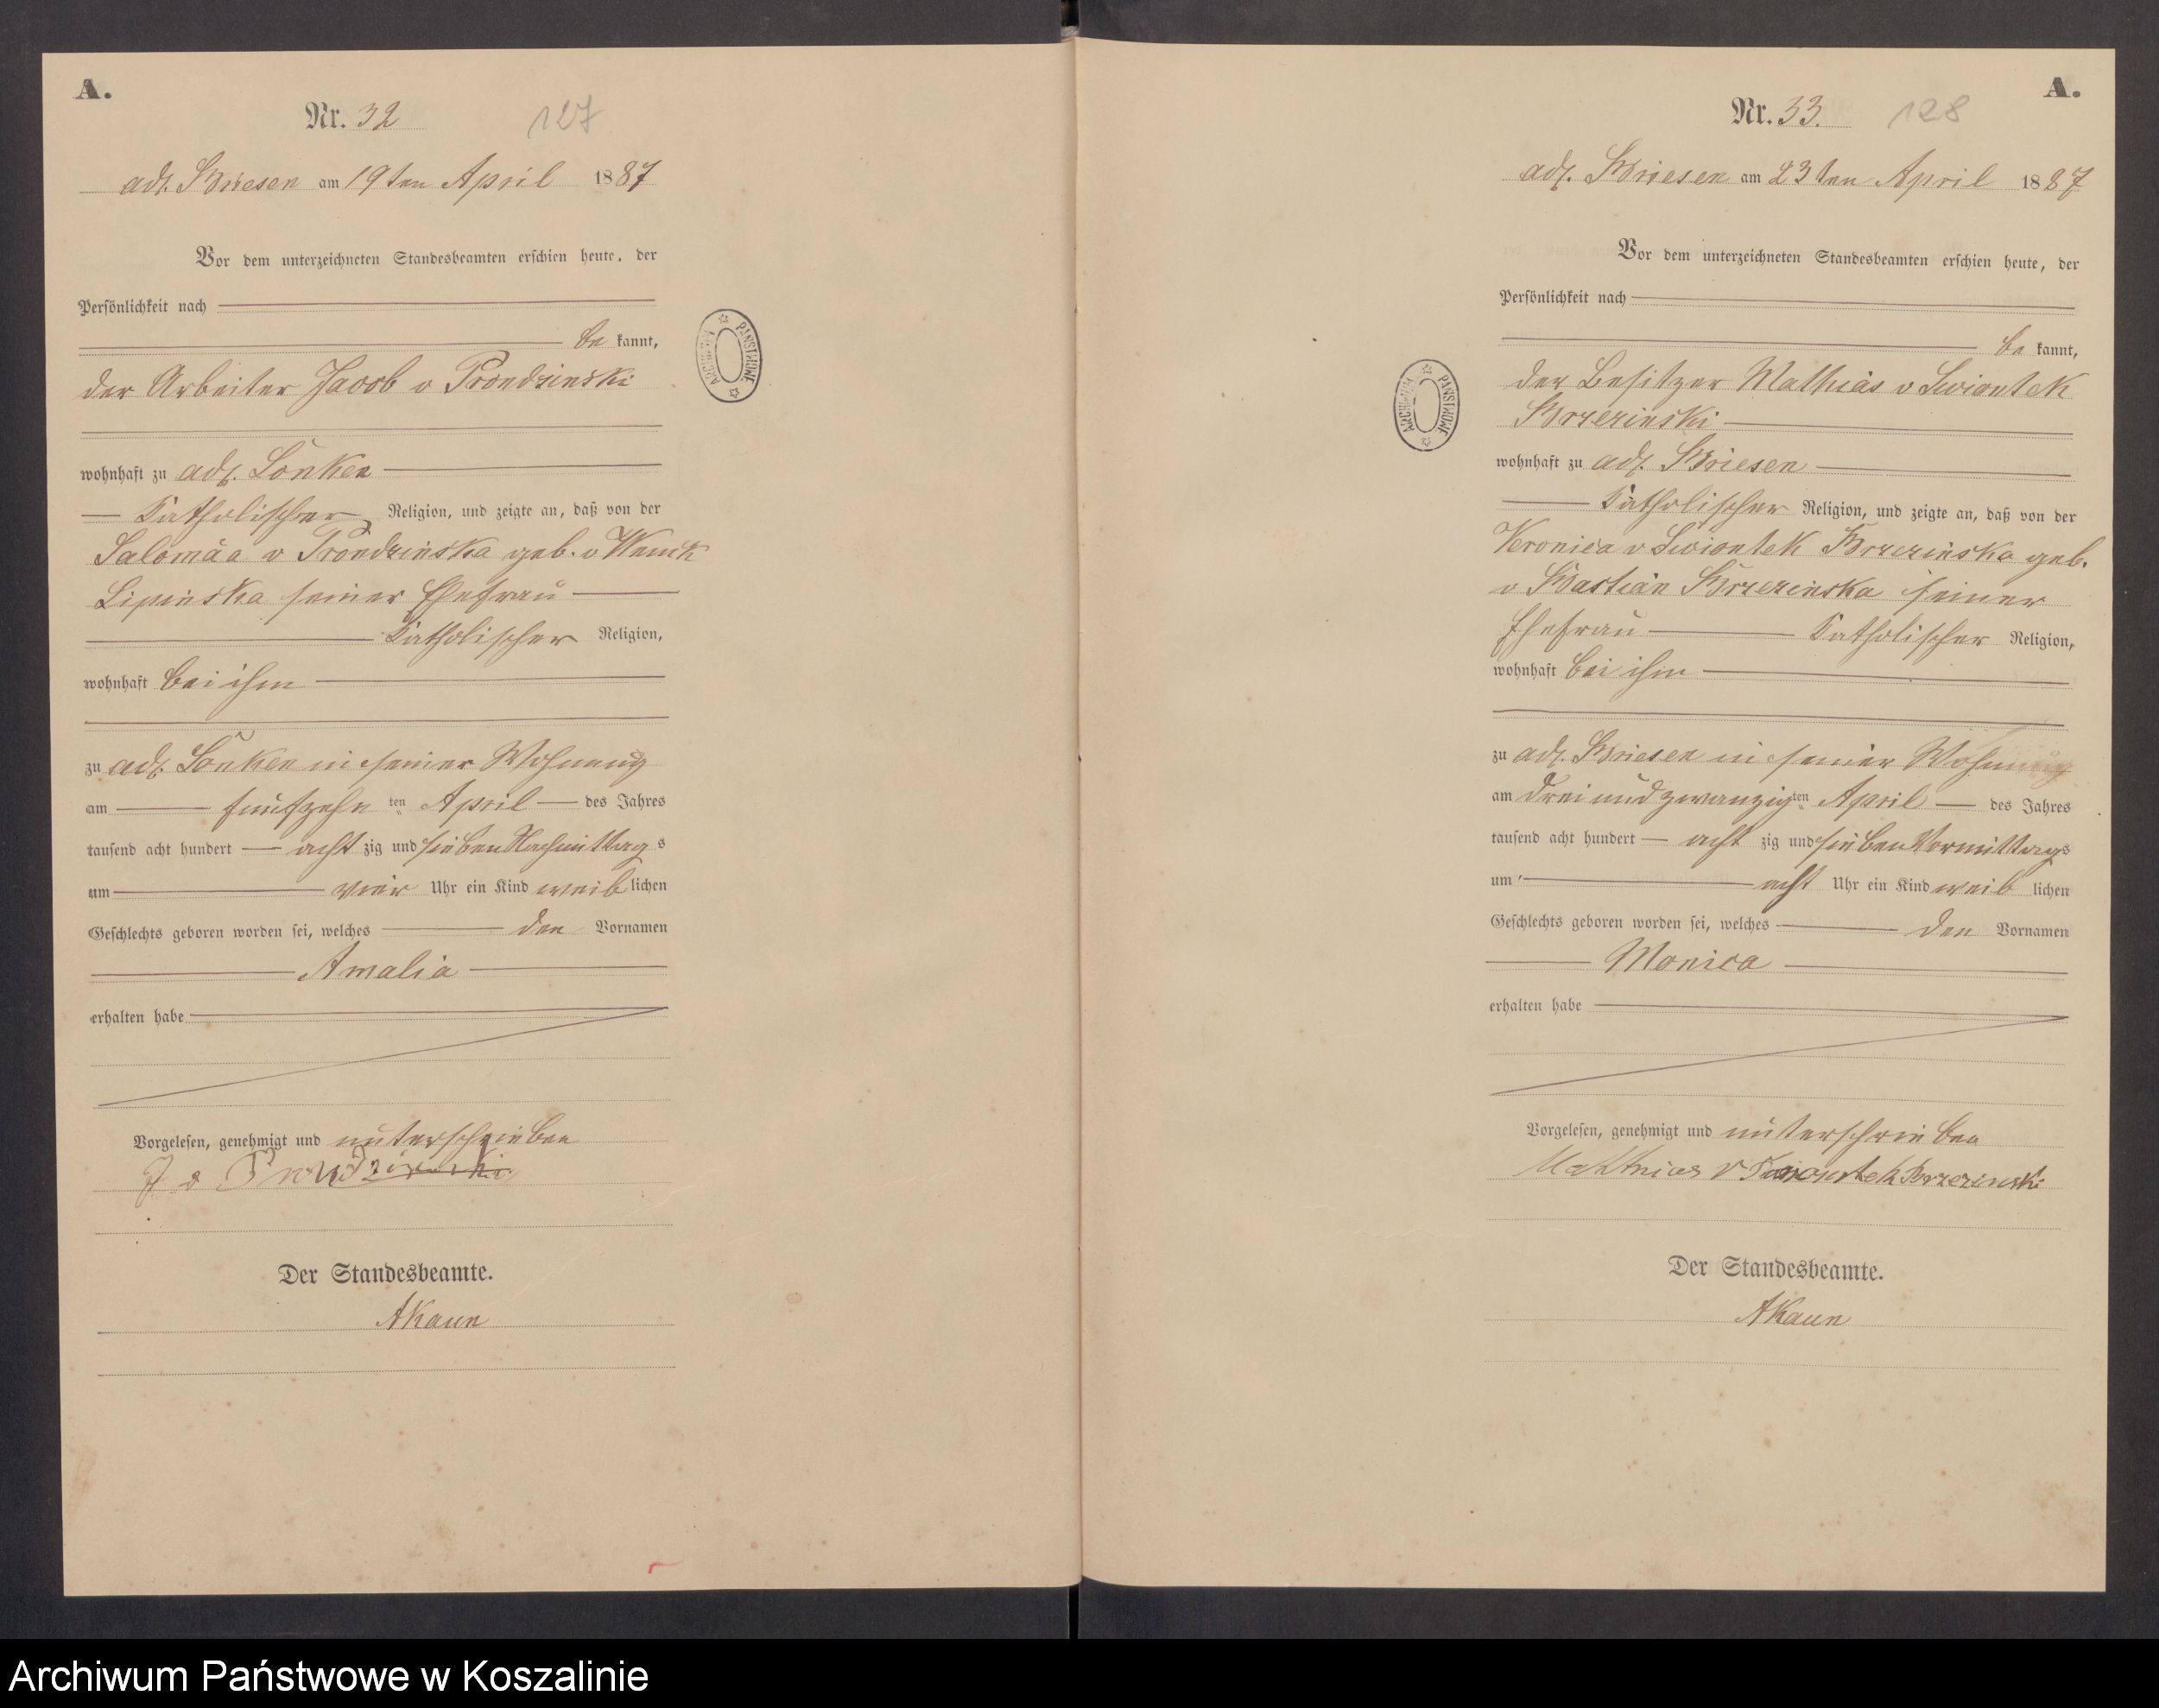 A.
Nr. 32 127
adl. Briesen am 19ten April 1887
Vor dem unterzeichneten Standesbeamten erschien heute, der
Persönlichkeit nach
be kannt,
der Arbeiter Jacob v Prondzinski
wohnhaft zu adl. Lonken
Katholischer Religion, und zeigte an, daß von der
Salomäa v Prondzinska geb. v Wenck
Lipinska seiner Ehefrau
Katholischer Religion,
wohnhaft bei ihm
zu adl. Lonken in seiner Wohnung
am fünfzehn ten April des Jahres
tausend acht hundert acht zig und sieben Nachmittags
um vier Uhr ein Kind weib lichen
Geschlechts geboren worden sei, welches den Vornamen
Amalia
erhalten habe
Vorgelesen, genehmigt und unterschrieben
J v Prondzinski
Der Standesbeamte.
AKaun
ARCHIWUM PAŃSTWOWE
A.
Nr. 33. 128
adl. Briesen am 23ten April 1887
Vor dem unterzeichneten Standesbeamten erschien heute, der
Persönlichkeit nach
be kannt,
der Besitzer Mathias v Swiontek
Brzezinski
wohnhaft zu adl. Briesen
Katholischer Religion, und zeigte an, daß von der
Veronica v Swiontek Brzezinska geb.
v Bastian Brzezinska seiner
Ehefrau Katholischer Religion,
wohnhaft bei ihm
zu adl. Briesen in seiner Wohnung
am dreiundzwanzigten April des Jahres
tausend acht hundert acht zig und sieben Vormittags
um acht Uhr ein Kind weib lichen
Geschlechts geboren worden sei, welches den Vornamen
Monica
erhalten habe
Vorgelesen, genehmigt und unterschrieben
Mathias v Brzezinski
Der Standesbeamte.
AKaun
ARCHIWUM PAŃSTWOWE
Archiwum Państwowe w Koszalinie